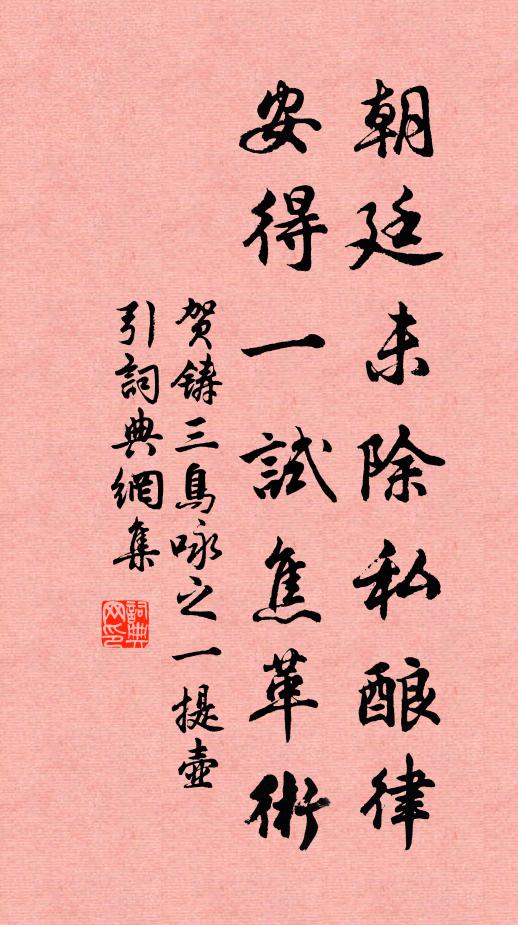 朝廷未除私酿律
安得一試焦革術
贺鑄三鳥咏之一提壺
引詞典網集
詞典网印